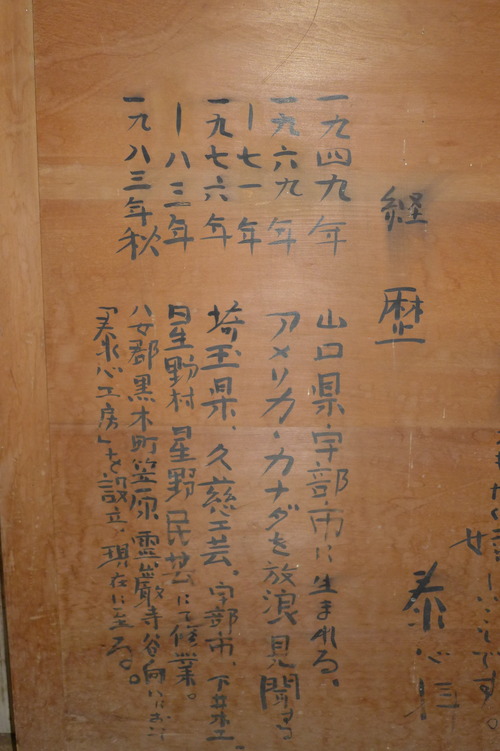 しいことです。
泰心
経歴
一九四九年 山口県宇部市に生まれる。
一九六九年 アメリカ・カナダを放浪見聞する
ー七一年
一九七六年 埼玉県、久慈工芸。宇部市、下井木工
ー八三年 星野村星野民芸にて修業。
一九八三年秋 八女郡黒木町笠原霊巌寺谷向いにおいて
「泰心工房」を設立、現在に至る。